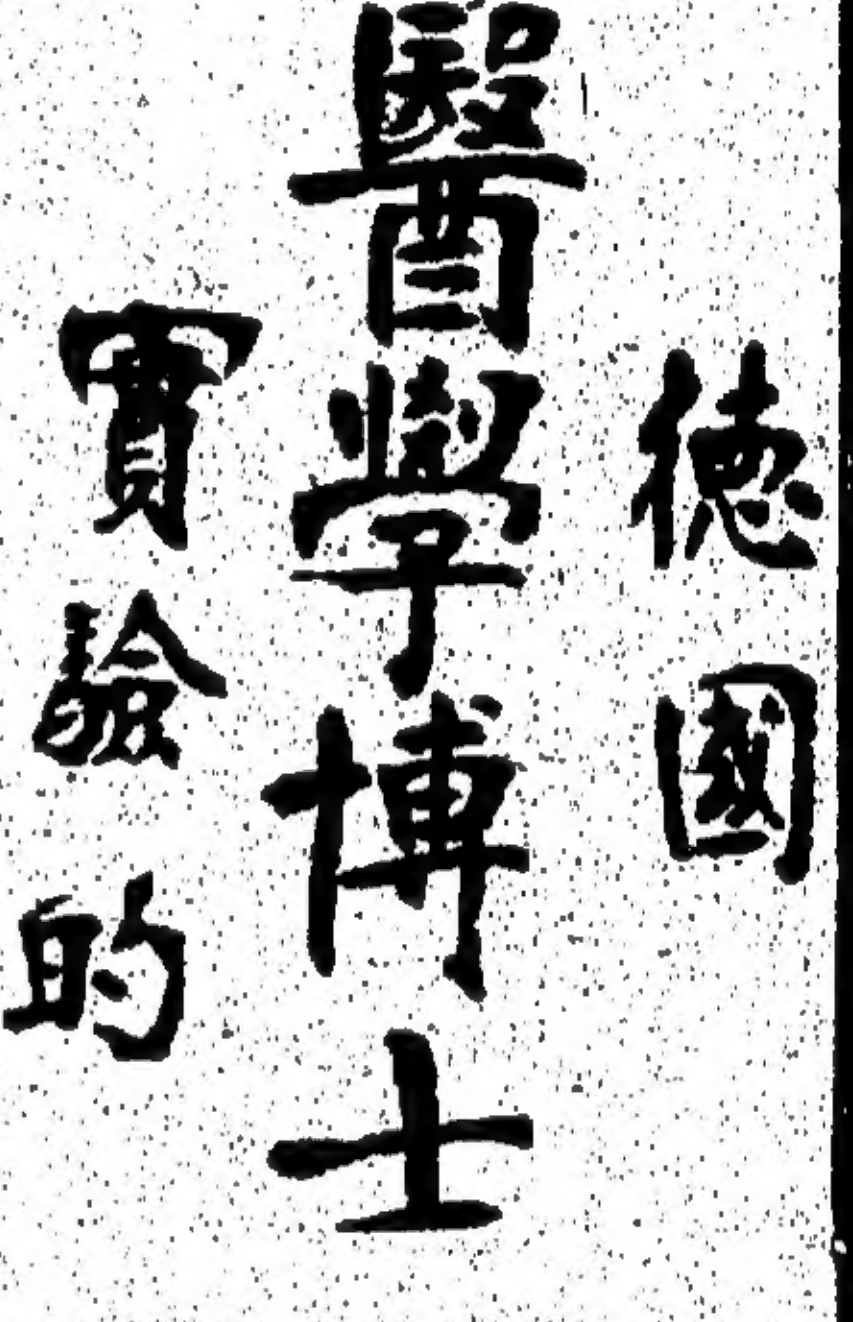 德國
醫學博士
實驗的